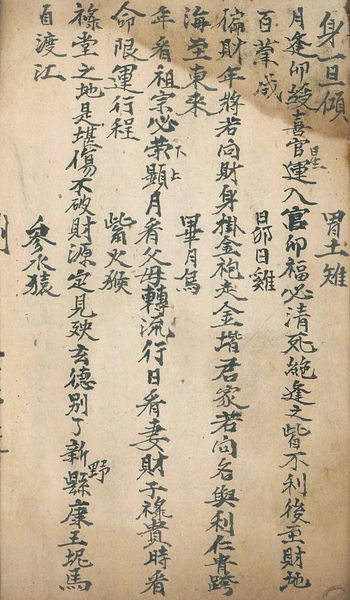 身一旦 胃土雉
月逢卯發喜官運入官卯福必清死絕逢之皆不利後至財地
日生
百 歲 昴日雞
偏財年将若向財身掛金袍走金堦君家若向名與利仁貴跨
海至東来 畢月烏
年看祖宗必荣顯月看父母轉流行日看妻財子祿貴時看
下上
命限運行程 觜火猴
祿堂之地是堪傷不破財源定見殃玄德別了新縣康王坭馬
野
自渡江 參水猿